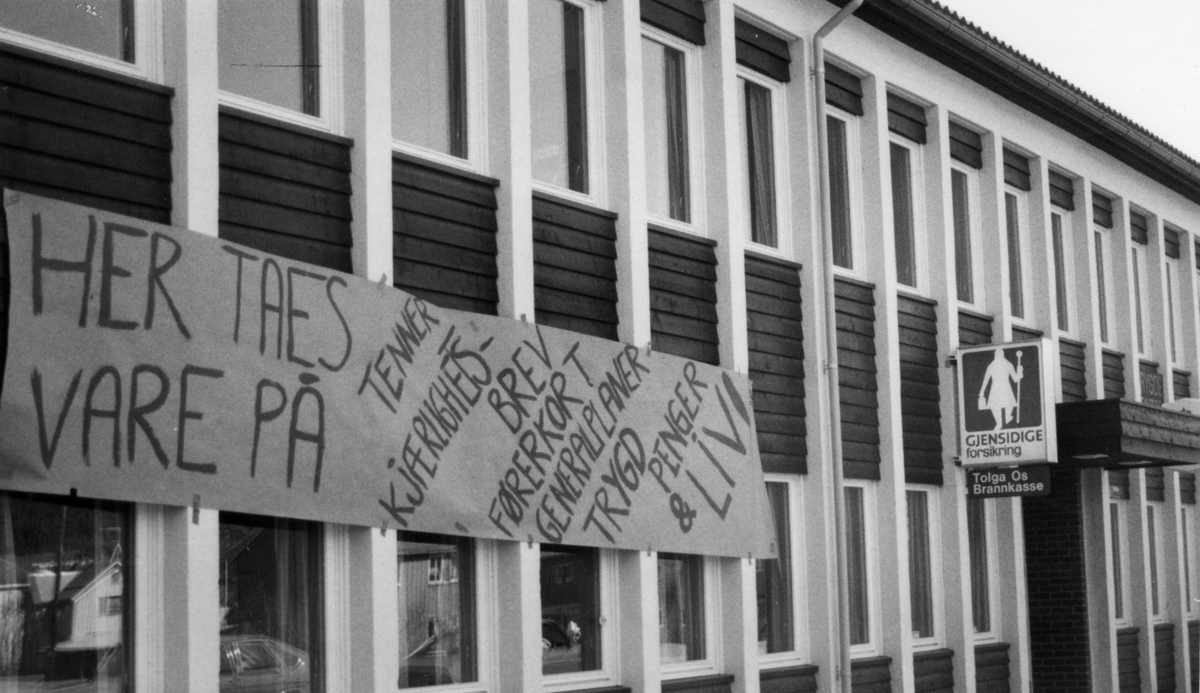 HER TAES
VARE PÅ
TENNER
KJÆRLIGHETS-
BREV
FØRERKORT
GENERALPLANER
TRYGD
PENGER
& LIV!
GJENSIDIGE
forsikring
Tolga Os
Brannkasse